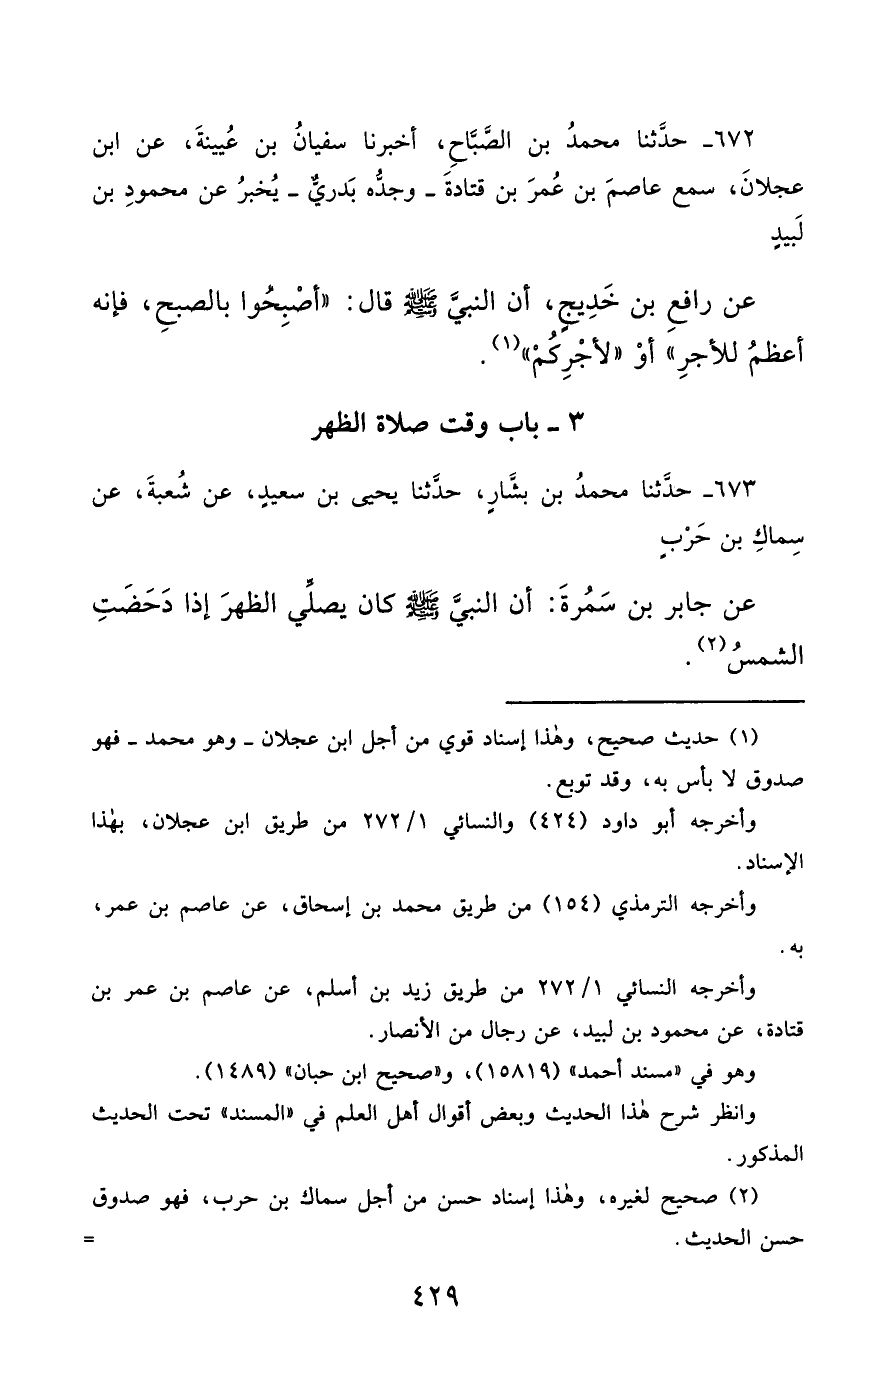 ٦٧٢ـ حدَّثنا محمدُ بن الصَّبَّاحِ، أخبرنا سفيانُ بن عُيينةَ، عن ابن
عجلانَ، سمع عاصمَ بن عُمرَ بن قتادةَ ـ وجدُّه بَدريٌّ ـ يُخبرُ عن محمودِ بن
لَبيدٍ
عن رافعِ بن خَدِيجٍ، أن النبيَّ ﷺ قال: «أصْبِحُوا بالصبحِ، فإنه
أعظمُ للأجرِ» أوْ «لأجْرِكُمْ»(١).
٣ ـ باب وقت صلاة الظهر
٦٧٣ـ حدَّثنا محمدُ بن بشَّارٍ، حدَّثنا يحيى بن سعيدٍ، عن شُعبةَ، عن
سِماكِ بن حَرْبٍ
عن جابر بن سَمُرةَ: أن النبيَّ ﷺ كان يصلِّي الظهرَ إذا دَحَضَتِ
الشمسُ(٢).
(١) حديث صحيح، وهٰذا إسناد قوي من أجل ابن عجلان ـ وهو محمد ـ فهو
صدوق لا بأس به، وقد توبع.
وأخرجه أبو داود (٤٢٤) والنسائي ١/ ٢٧٢ من طريق ابن عجلان، بهٰذا
الإسناد.
وأخرجه الترمذي (١٥٤) من طريق محمد بن إسحاق، عن عاصم بن عمر،
به.
وأخرجه النسائي ١/ ٢٧٢ من طريق زيد بن أسلم، عن عاصم بن عمر بن
قتادة، عن محمود بن لبيد، عن رجال من الأنصار.
وهو في «مسند أحمد» (١٥٨١٩)، و«صحيح ابن حبان» (١٤٨٩).
وانظر شرح هٰذا الحديث وبعض أقوال أهل العلم في «المسند» تحت الحديث
المذكور.
(٢) صحيح لغيره، وهٰذا إسناد حسن من أجل سماك بن حرب، فهو صدوق
حسن الحديث. =
٤٢٩